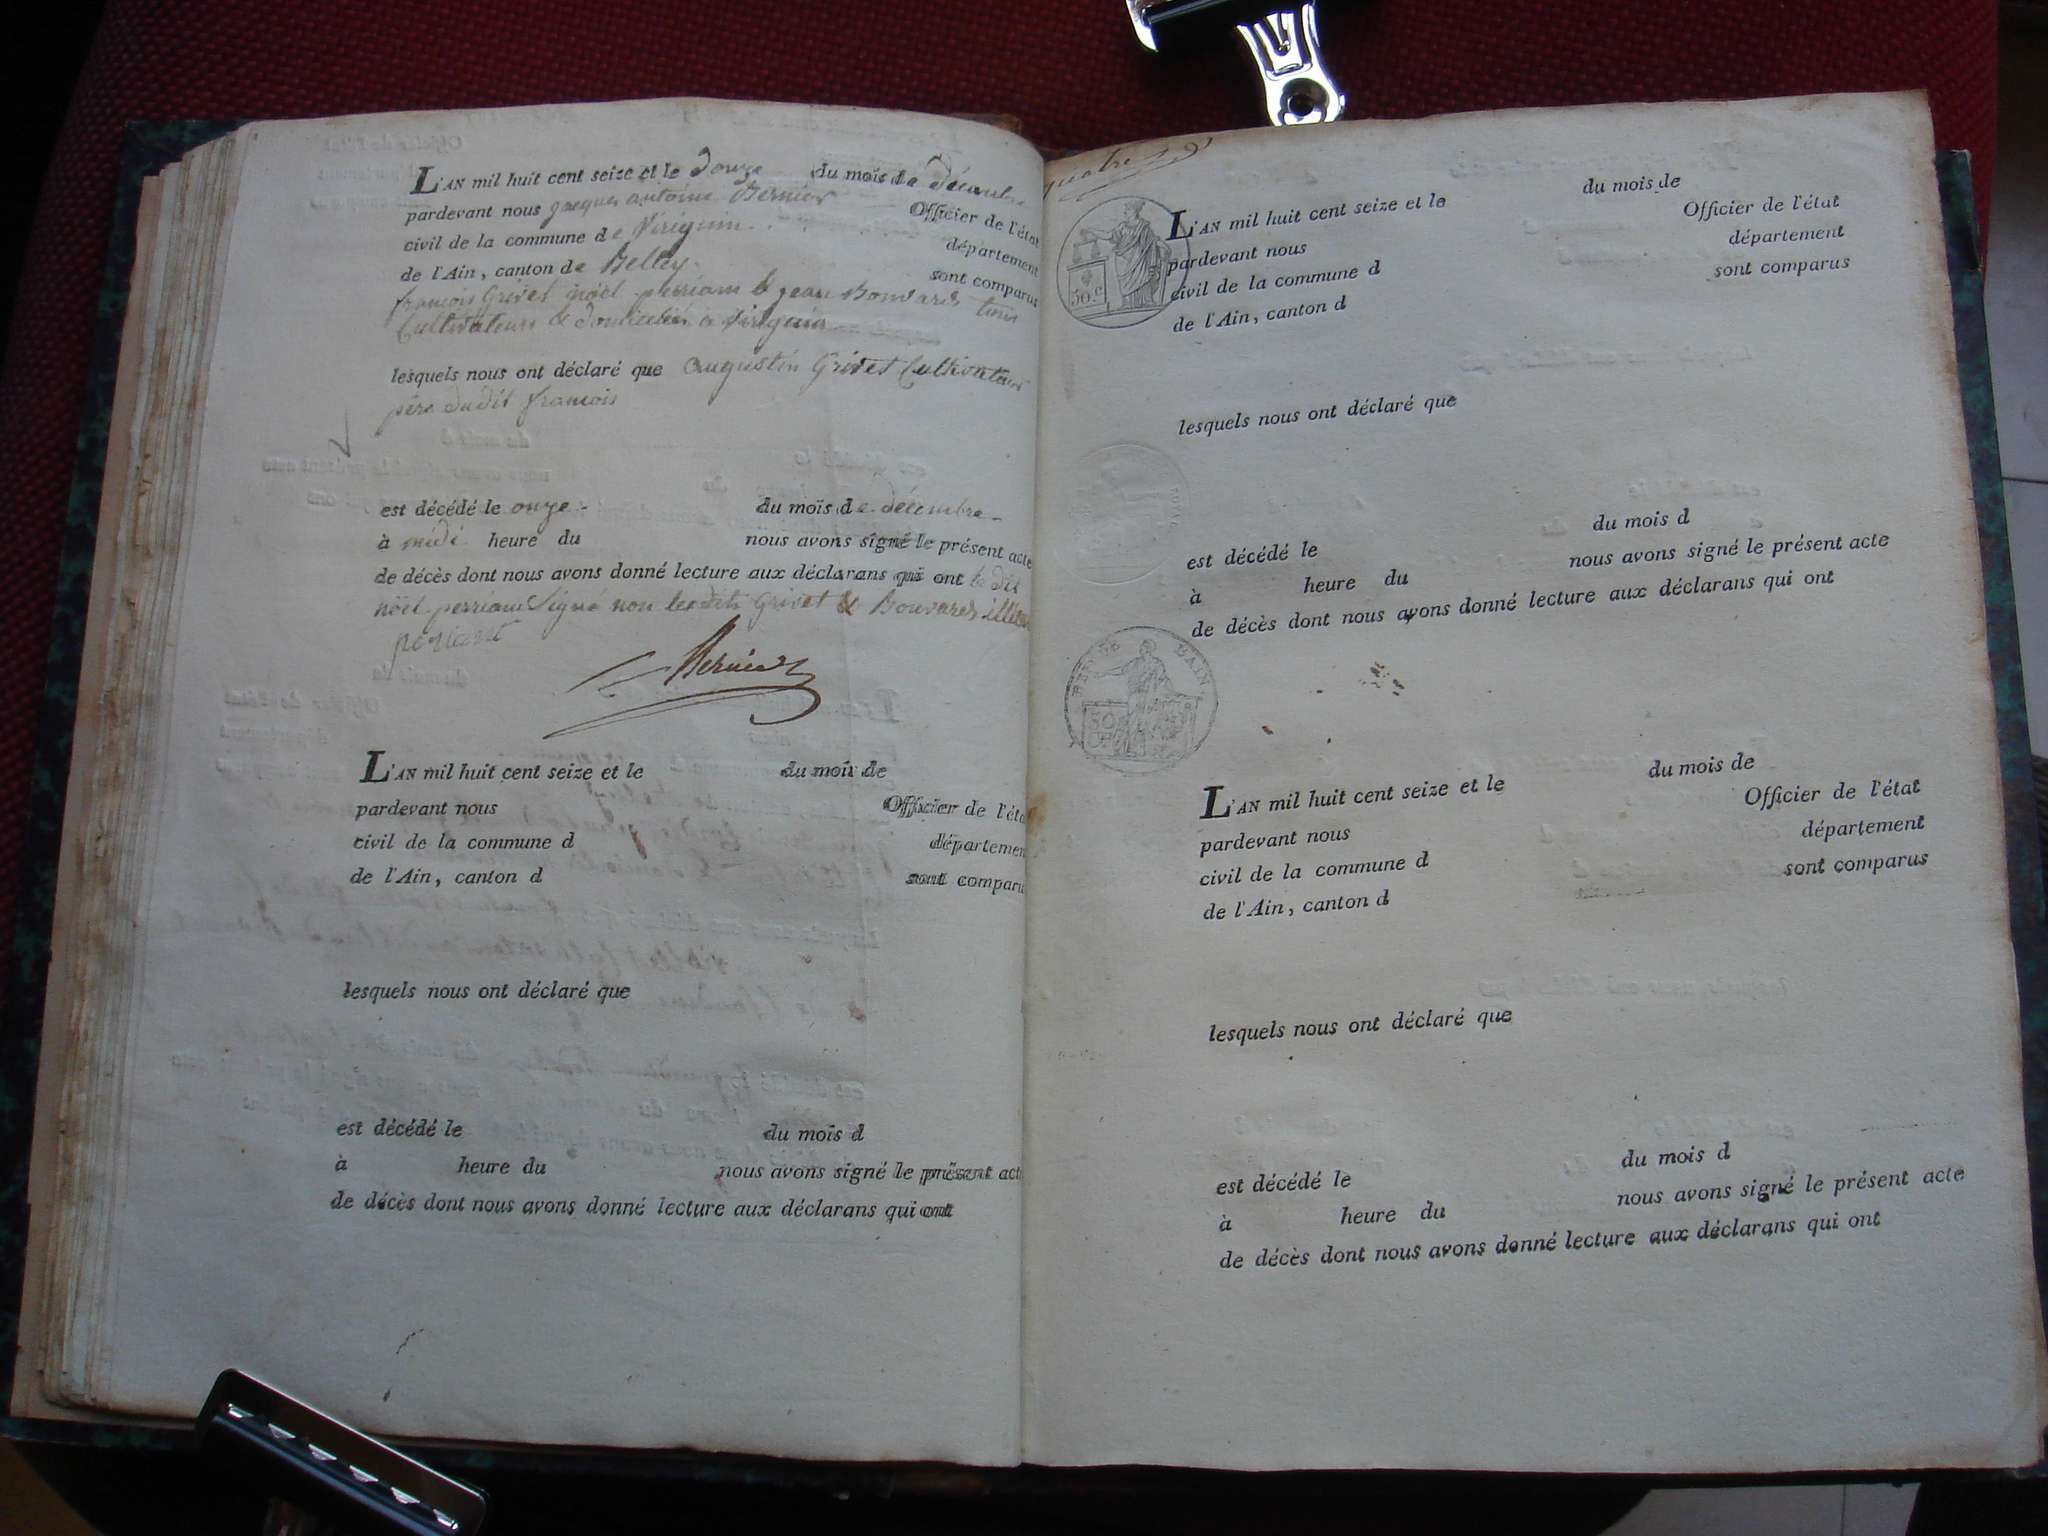 L'AN mil huit cent seize et le douze du mois de décembre
pardevant nous jacques antoine Bernier Officier de l'état
civil de la commune de Virignin département
de l'Ain, canton de Belley sont comparus
françois Grivet noël perriam & jean Bouvard tous
Cultivateurs & domiciliés à virignin
lesquels nous ont déclaré que augustin Grivet Cultivateur
père dudit francois
est décédé le onze du mois de décembre
à midi heure du nous avons signé le présent acte
de décès dont nous avons donné lecture aux déclarans qui ont le dit
noël perriam Signé non lesdits Grivet & Bouvard
Bernier
L'AN mil huit cent seize et le du mois de
pardevant nous Officier de l'éta
civil de la commune d départemen
de l'Ain, canton d sont comparu
lesquels nous ont déclaré que
est décédé le du mois d
à heure du nous avons signé le présent acte
de décès dont nous avons donné lecture aux déclarans qui ont
30.c
L'AN mil huit cent seize et le du mois de
pardevant nous Officier de l'état
civil de la commune d département
de l'Ain, canton d sont comparus
lesquels nous ont déclaré que
est décédé le du mois d
à heure du nous avons signé le présent acte
de décès dont nous avons donné lecture aux déclarans qui ont
L'AIN.
L'AN mil huit cent seize et le du mois de
pardevant nous Officier de l'état
civil de la commune d département
de l'Ain, canton d sont comparus
lesquels nous ont déclaré que
est décédé le du mois d
à heure du nous avons signé le présent acte
de décès dont nous avons donné lecture aux déclarans qui ont